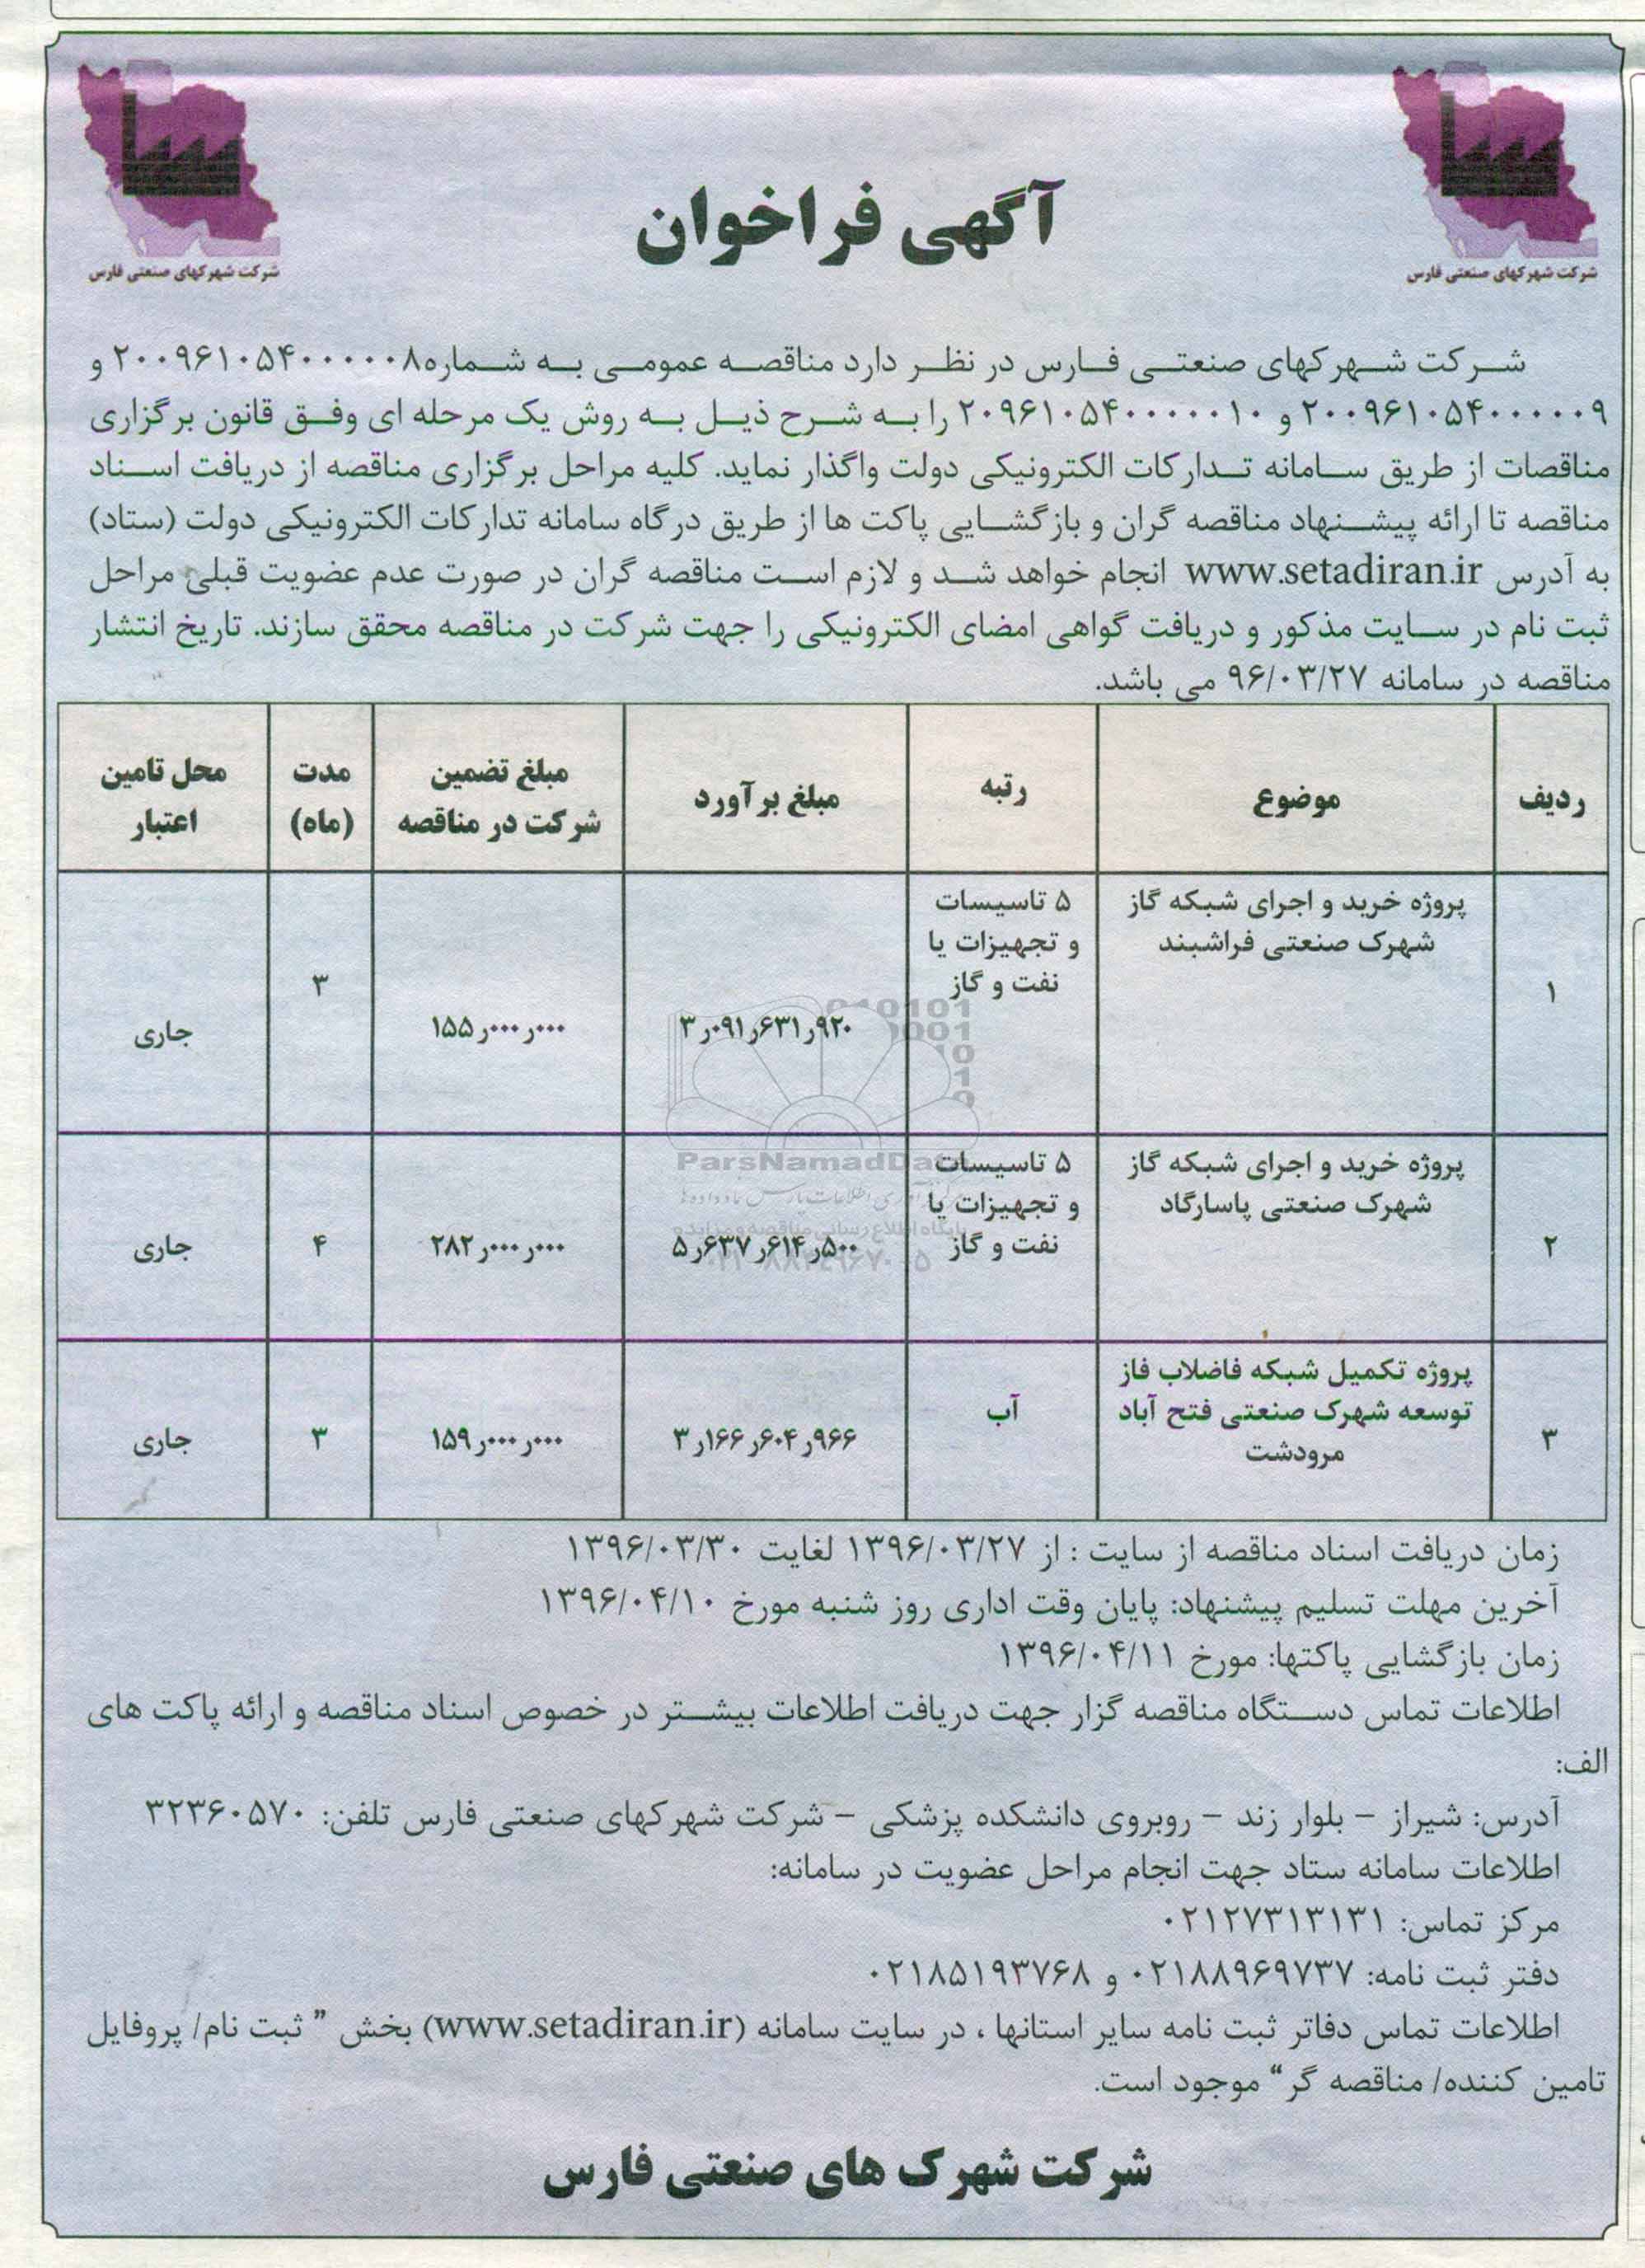 شرکت شهرکهای صنعتی فارس
شرکت شهرکهای صنعتی فارس
آگهی فراخوان
شرکت شهرکهای صنعتی فارس در نظر دارد مناقصه عمومی به شماره۲۰۰۹۶۱۰۵۴۰۰۰۰۰۸ و
۲۰۰۹۶۱۰۵۴۰۰۰۰۰۹ و ۲۰۹۶۱۰۵۴۰۰۰۰۰۱۰ را به شرح ذیل به روش یک مرحله ای وفق قانون برگزاری
مناقصات از طریق سامانه تدارکات الکترونیکی دولت واگذار نماید. کلیه مراحل برگزاری مناقصه از دریافت اسناد
مناقصه تا ارائه پیشنهاد مناقصه گران و بازگشایی پاکت ها از طریق درگاه سامانه تدارکات الکترونیکی دولت (ستاد)
به آدرس www.setadiran.ir انجام خواهد شد و لازم است مناقصه گران در صورت عدم عضویت قبلی مراحل
ثبت نام در سایت مذکور و دریافت گواهی امضای الکترونیکی را جهت شرکت در مناقصه محقق سازند. تاریخ انتشار
مناقصه در سامانه ۹۶/۰۳/۲۷ می باشد.
ردیف موضوع رتبه مبلغ برآورد مبلغ تضمین شرکت در مناقصه مدت (ماه) محل تامین اعتبار
۱ پروژه خرید و اجرای شبکه گاز شهرک صنعتی فراشبند ۵ تاسیسات و تجهیزات یا نفت و گاز ۳ر۰۹۱ر۶۳۱ر۹۲۰ ۱۵۵ر۰۰۰ر۰۰۰ ۳ جاری
۲ پروژه خرید و اجرای شبکه گاز شهرک صنعتی پاسارگاد ۵ تاسیسات و تجهیزات یا نفت و گاز ۵ر۶۳۷ر۶۱۴ر۵۰۰ ۲۸۲ر۰۰۰ر۰۰۰ ۴ جاری
۳ پروژه تکمیل شبکه فاضلاب فاز توسعه شهرک صنعتی فتح آباد مرودشت آب ۳ر۱۶۶ر۶۰۴ر۹۶۶ ۱۵۹ر۰۰۰ر۰۰۰ ۳ جاری
ParsNamadData
زمان دریافت اسناد مناقصه از سایت : از ۱۳۹۶/۰۳/۲۷ لغایت ۱۳۹۶/۰۳/۳۰
آخرین مهلت تسلیم پیشنهاد: پایان وقت اداری روز شنبه مورخ ۱۳۹۶/۰۴/۱۰
زمان بازگشایی پاکتها: مورخ ۱۳۹۶/۰۴/۱۱
اطلاعات تماس دستگاه مناقصه گزار جهت دریافت اطلاعات بیشتر در خصوص اسناد مناقصه و ارائه پاکت های
الف:
آدرس: شیراز – بلوار زند – روبروی دانشکده پزشکی – شرکت شهرکهای صنعتی فارس تلفن: ۳۲۳۶۰۵۷۰
اطلاعات سامانه ستاد جهت انجام مراحل عضویت در سامانه:
مرکز تماس: ۰۲۱۲۷۳۱۳۱۳۱
دفتر ثبت نامه: ۰۲۱۸۸۹۶۹۷۳۷ و ۰۲۱۸۵۱۹۳۷۶۸
اطلاعات تماس دفاتر ثبت نامه سایر استانها ، در سایت سامانه (www.setadiran.ir) بخش ” ثبت نام/ پروفایل
تامین کننده/ مناقصه گر“ موجود است.
شرکت شهرک های صنعتی فارس